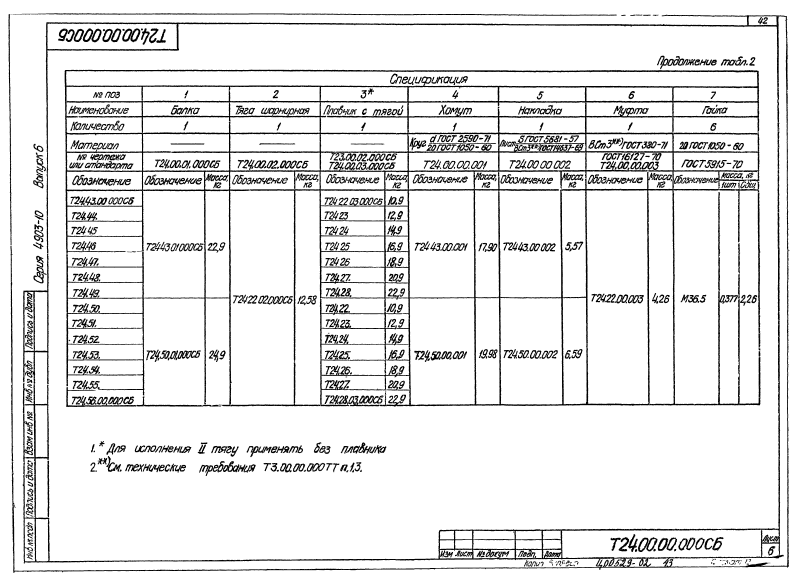 42
Т24.00.00.000СБ
Продолжение табл.2
Спецификация
№ поз 1 2 3* 4 5 6 7
Наименование Балка Тяга шарнирная Плавник с тягой Хомут Накладка Муфта Гайка
Количество 1 1 1 1 1 1 6
Материал — — — Круг d ГОСТ 2590-71 / 20 ГОСТ 1050-60 Лист δ ГОСТ 5681-57 / ВСт3**) ГОСТ 14637-69 ВСт3**) ГОСТ 380-71 20 ГОСТ 1050-60
№ чертежа или стандарта Т24.00.01.000СБ Т24.00.02.000СБ Т23.00.02.000СБ Т24.00.03.000СБ Т24.00.00.001 Т24.00.00.002 ГОСТ 16127-70 Т24.00.00.003 ГОСТ 5915-70
Обозначение Обозначение Масса, кг Обозначение Масса, кг Обозначение Масса, кг Обозначение Масса, кг Обозначение Масса, кг Обозначение Масса, кг Обозначение Масса, кг 1шт Общ.
Т24.43.00.000СБ Т24.22.03.000СБ 10,9
Т24.44. Т24.23 12,9
Т24.45 Т24.24 14,9
Т24.46 Т24.43.01.000СБ 22,9 Т24.25 16,9 Т24.43.00.001 17,90 Т24.43.00.002 5,57
Т24.47. Т24.26 18,9
Т24.48. Т24.27. 20,9
Т24.49. Т24.22.02.000СБ 12,58 Т24.28. 22,9 Т24.22.00.003 4,26 М36.5 0,377 2,26
Т24.50. Т24.22. 10,9
Т24.51. Т24.23. 12,9
Т24.52. Т24.24. 14,9
Т24.53. Т24.50.01.000СБ 24,9 Т24.25. 16,9 Т24.50.00.001 19,98 Т24.50.00.002 6,59
Т24.54. Т24.26. 18,9
Т24.55. Т24.27. 20,9
Т24.56.00.000СБ Т24.28.03.000СБ 22,9
1.* Для исполнения II тягу применять без плавника
2.**) См. технические требования Т3.00.00.000ТТ п.1,3.
Серия 4.903-10 Выпуск 6
Инв.№ подл. Подпись и дата Взам инв № Инв № дубл Подпись и дата
Изм Лист № докум Подп. Дата
Т24.00.00.000СБ
Лист
6
Ц00529-02 43